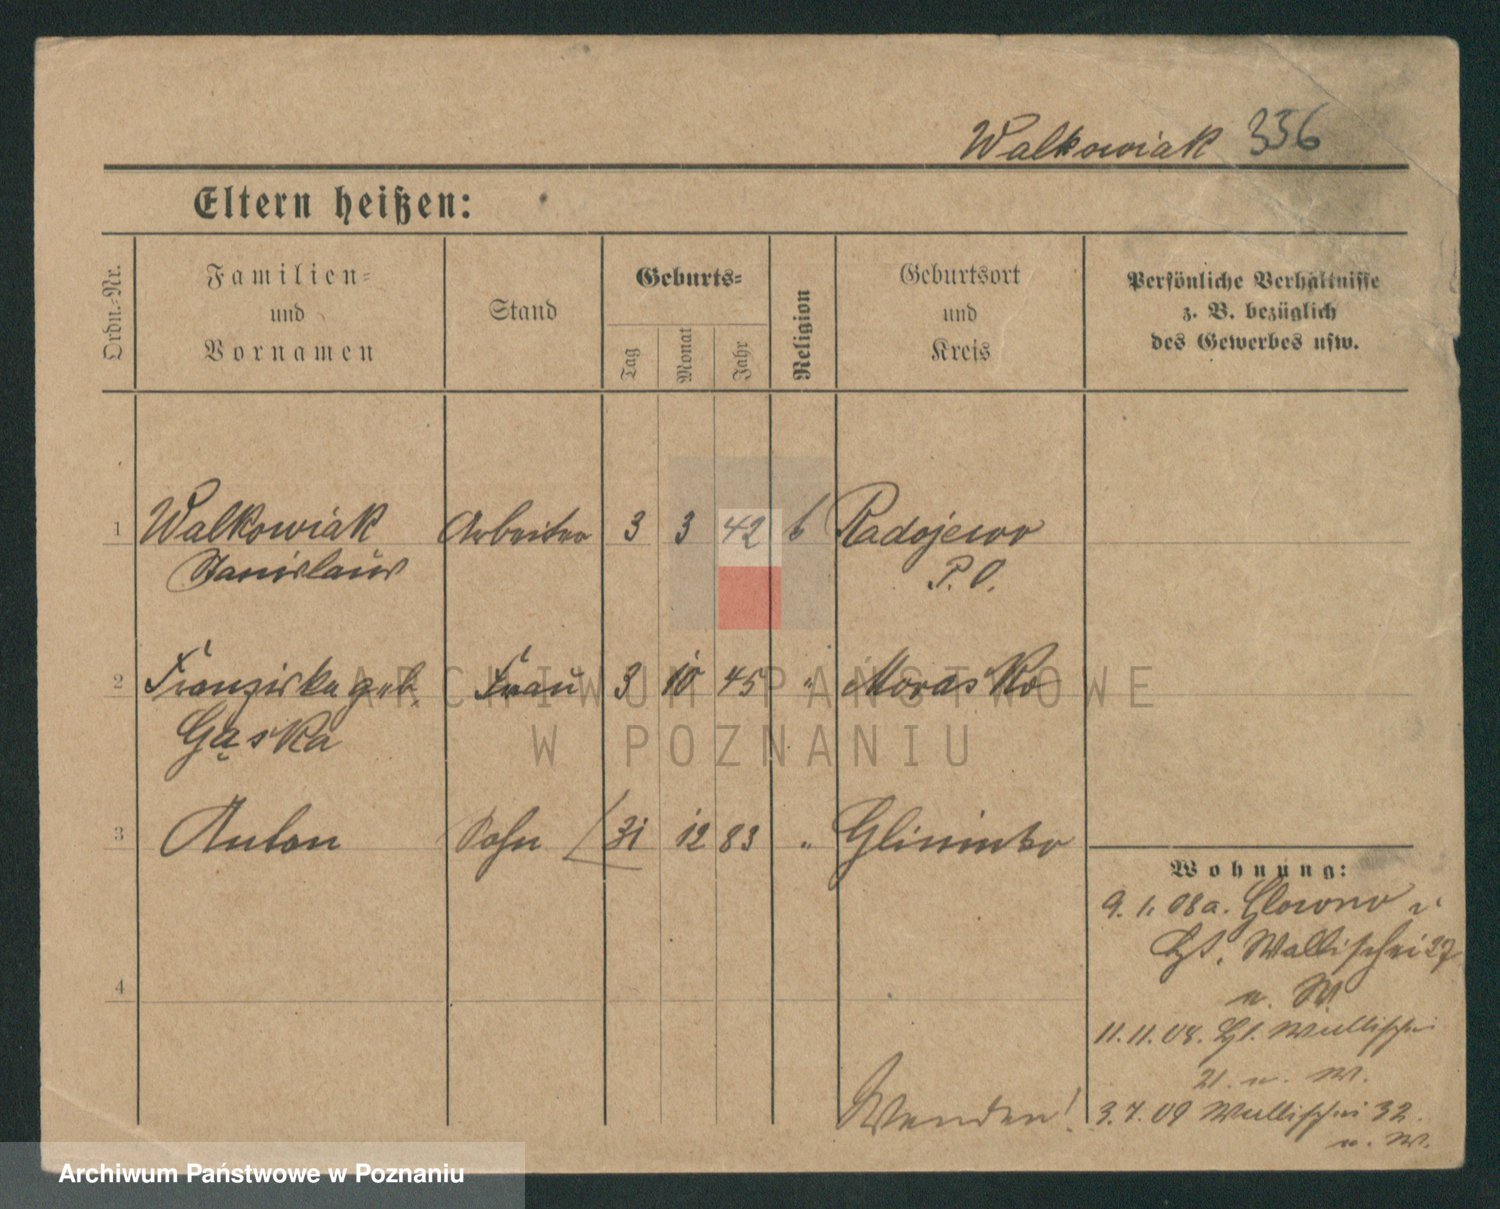 Walkowiak 336
Eltern heißen:
Ordn.-Nr.
Familien-
und
Vornamen
Stand
Geburts-
Tag
Monat
Jahr
Religion
Geburtsort
und
Kreis
Persönliche Verhältnisse
z. B. bezüglich
des Gewerbes usw.
1 Walkowiak Arbeiter 3 3 42 Radojewo
Stanislaus P. O.
2 Franziska geb. Frau 3 10 45 " Morasko
Gąska
3 Anton Sohn 31 12 83 " Glinienko
Wohnung:
9. 1. 08 a. Glowno
Wallischei 37
n. W.
4
11.11.08. Wallischei
21. n. W.
Wenden!
3.7.09 Wallischei 32.
n. W.
ARCHIWUM PAŃSTWOWE
W POZNANIU
Archiwum Państwowe w Poznaniu